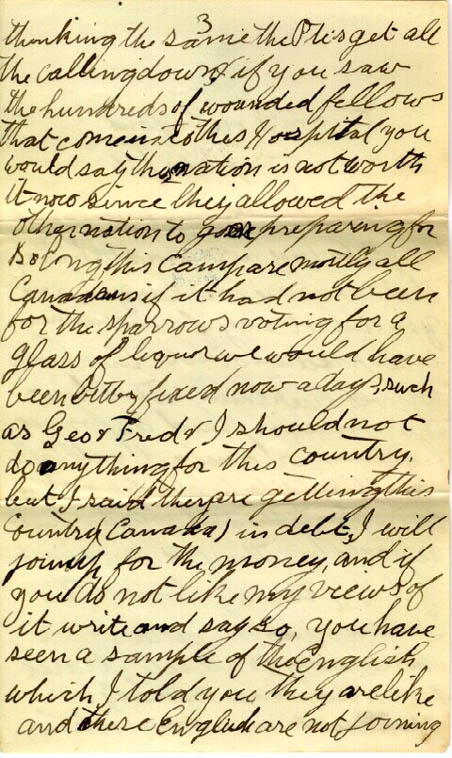 3
thinking the same the Ptes get all
the calling down & if you saw
the hundreds of wounded fellows
that come into this Hospital you
would say the nation is not worth
it now since they allowed the
other nation to go on preparing for
so long this Camp are mostly all
Canadians if it had not been
for the sparrows voting for a
glass of liquor we would have
been better fixed now a days, such
as Geo & Fred & I should not
do anything for this country,
but I said they are getting this
Country (Canada) in debt, I will
join up for the money, and if
you do not like my views of
it write and say so, you have
seen a sample of the English
which I told you they are like
and these English are not joining